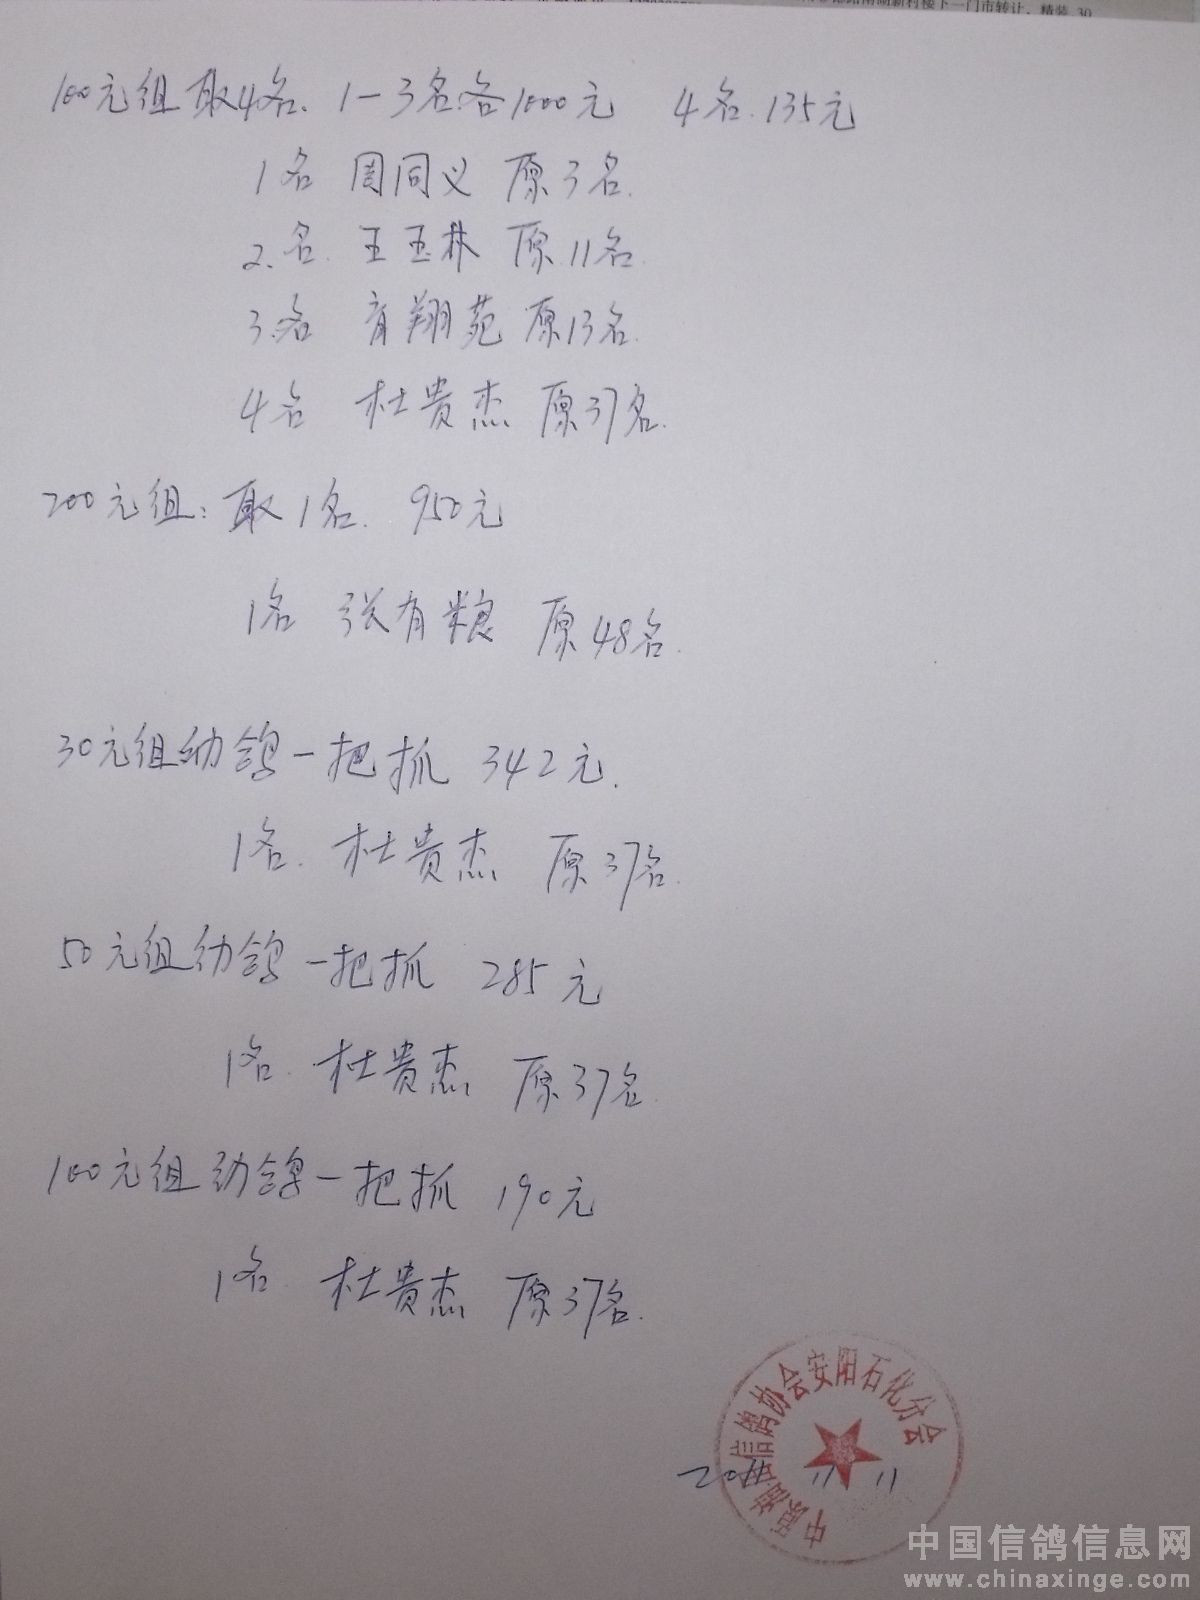 100元组取4名、1-3名各1000元 4名.135元
1名 周同义 原3名.
2、名. 王玉林 原.11名.
3.名 育翔苑 原13名.
4名 杜贵杰 原37名.
200元组: 取1名. 950元
1名 张有粮 原48名.
30元组幼鸽一把抓 342元.
1名. 杜贵杰 原37名.
50元组幼鸽一把抓 285元
1名. 杜贵杰 原37名.
100元组幼鸽一把抓 190元
1名. 杜贵杰 原37名.
信鸽协会安阳石化分会
11 11
中国信鸽信息网
www.chinaxinge.com